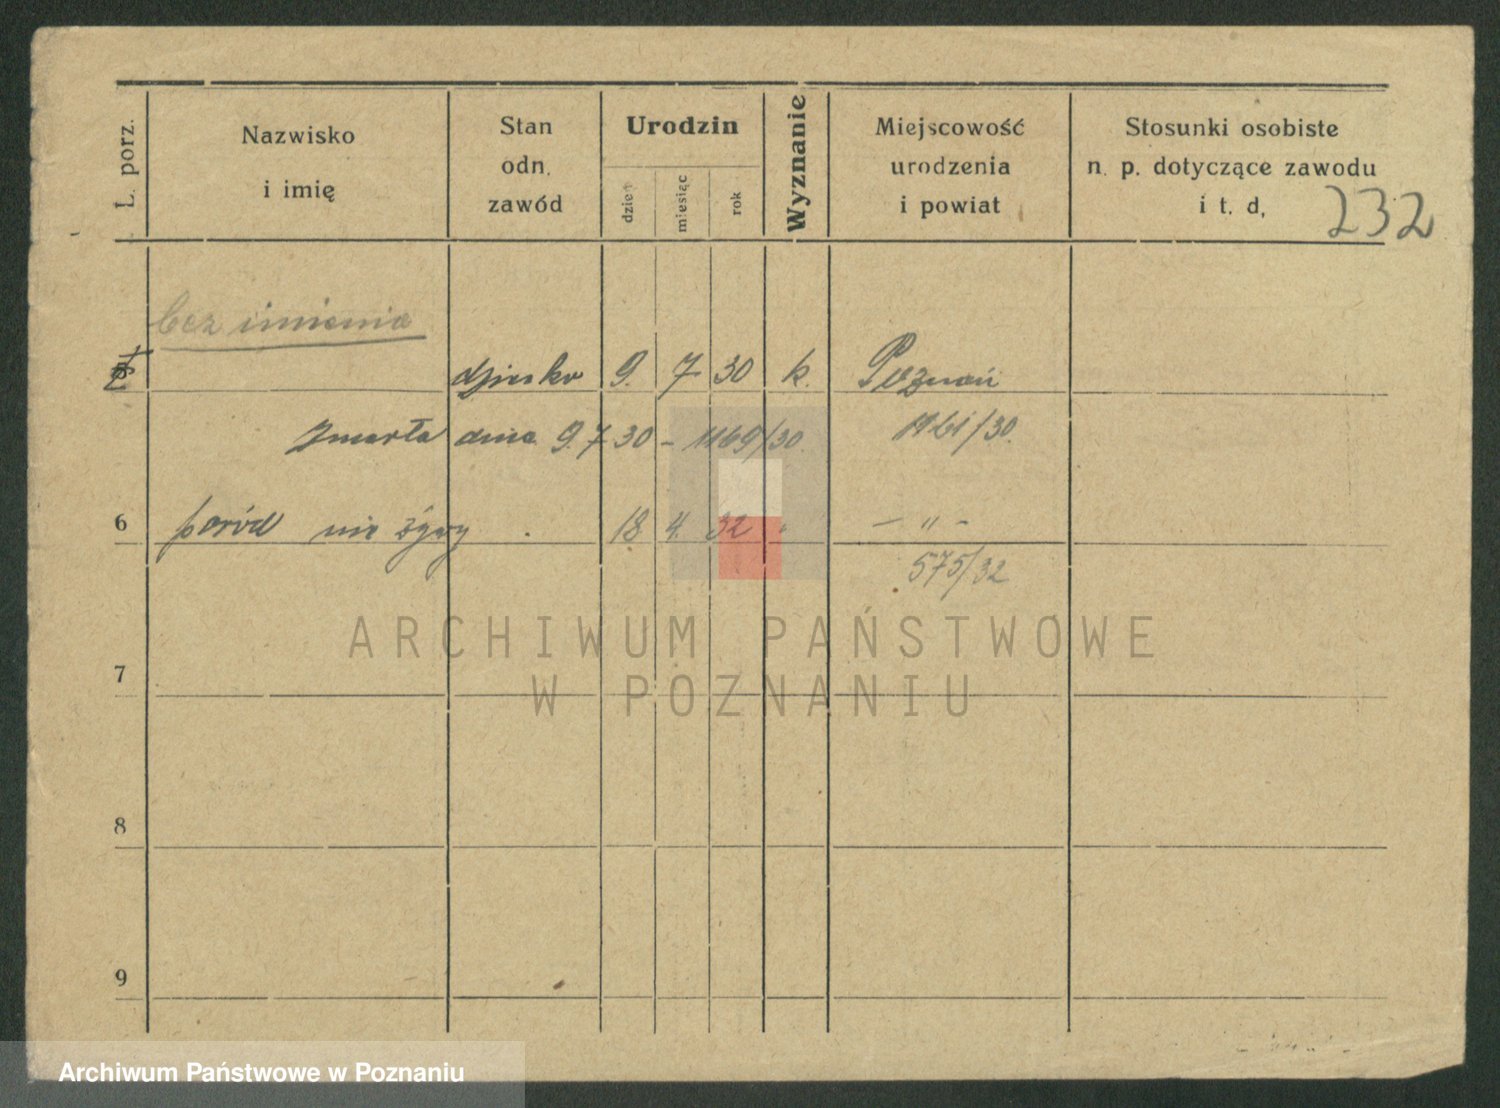 L. porz.
Nazwisko
i imię
Stan
odn.
zawód
Urodzin
dzień
miesiąc
rok
Wyznanie
Miejscowość
urodzenia
i powiat
Stosunki osobiste
n. p. dotyczące zawodu
i t. d.
232
bez imienia
dziecko 9. 7 30 k. Poznań
zmarła dnia 9.7 30 - 1169/30 1161/30.
6 poród nie żywy 18 4. 32 " - " -
575/32
ARCHIWUM PAŃSTWOWE
W POZNANIU
7
8
9
Archiwum Państwowe w Poznaniu